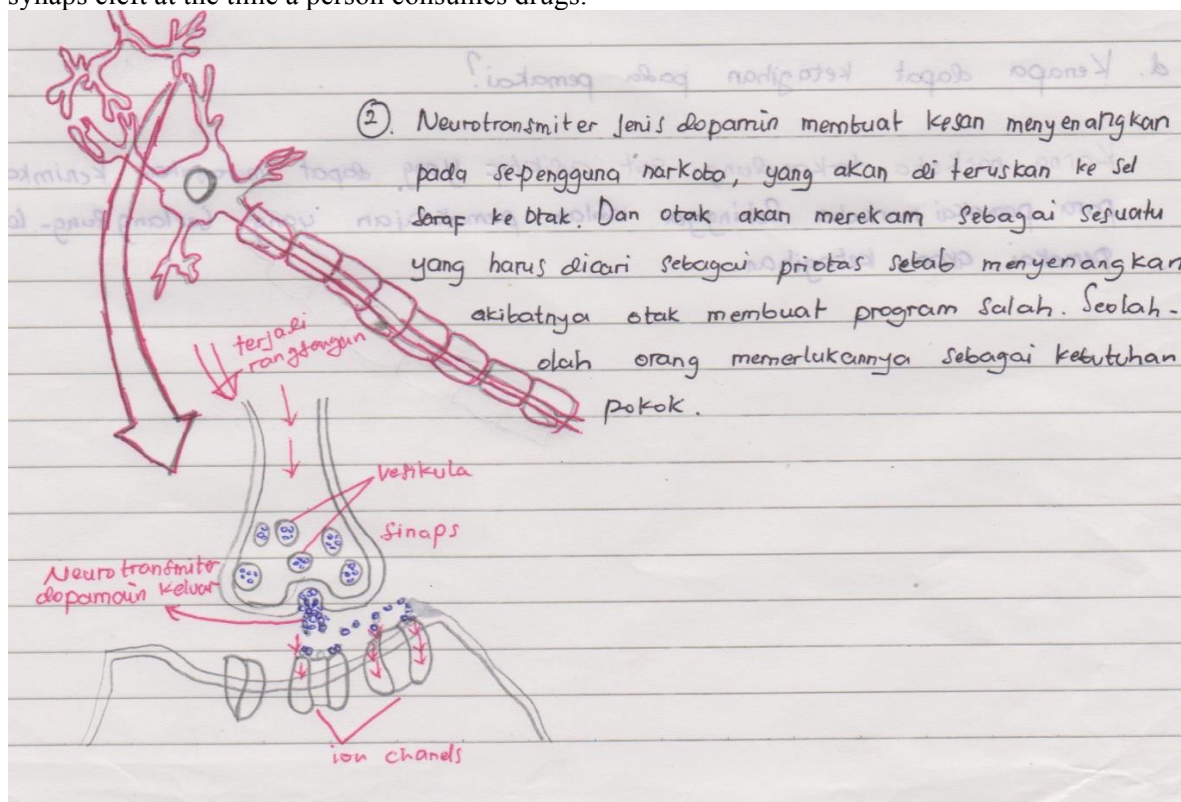 synaps cleft at the time a person consumes drugs.
d. Kenapa dapat ketagihan pada pemakai?
②. Neurotransmiter Jenis dopamin membuat kesan menyenangkan
pada se-pengguna narkoba, yang akan di teruskan ke sel
saraf ke otak. Dan otak akan merekam sebagai sesuatu
yang harus dicari sebagai priotas sebab menyenangkan
akibatnya otak membuat program salah. Seolah-
olah orang memerlukannya sebagai kebutuhan
pokok.
terjadi
rangsangan
Vesikula
Sinaps
Neurotransmiter
dopamain keluar
ion chanels